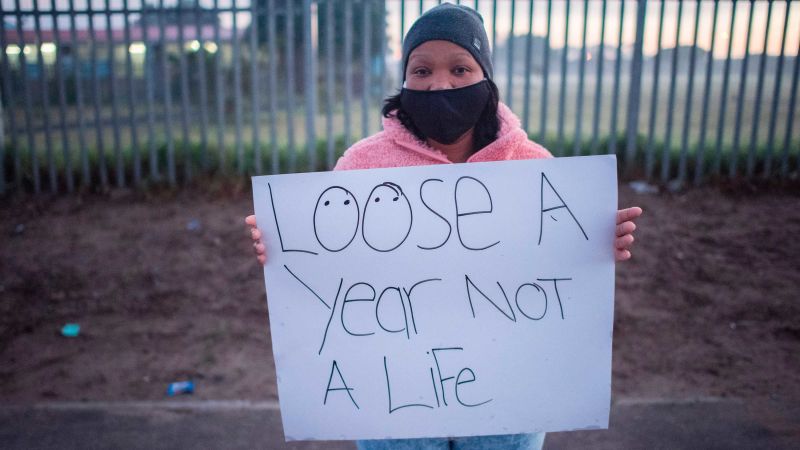 LOOSE A
Year Not
A Life